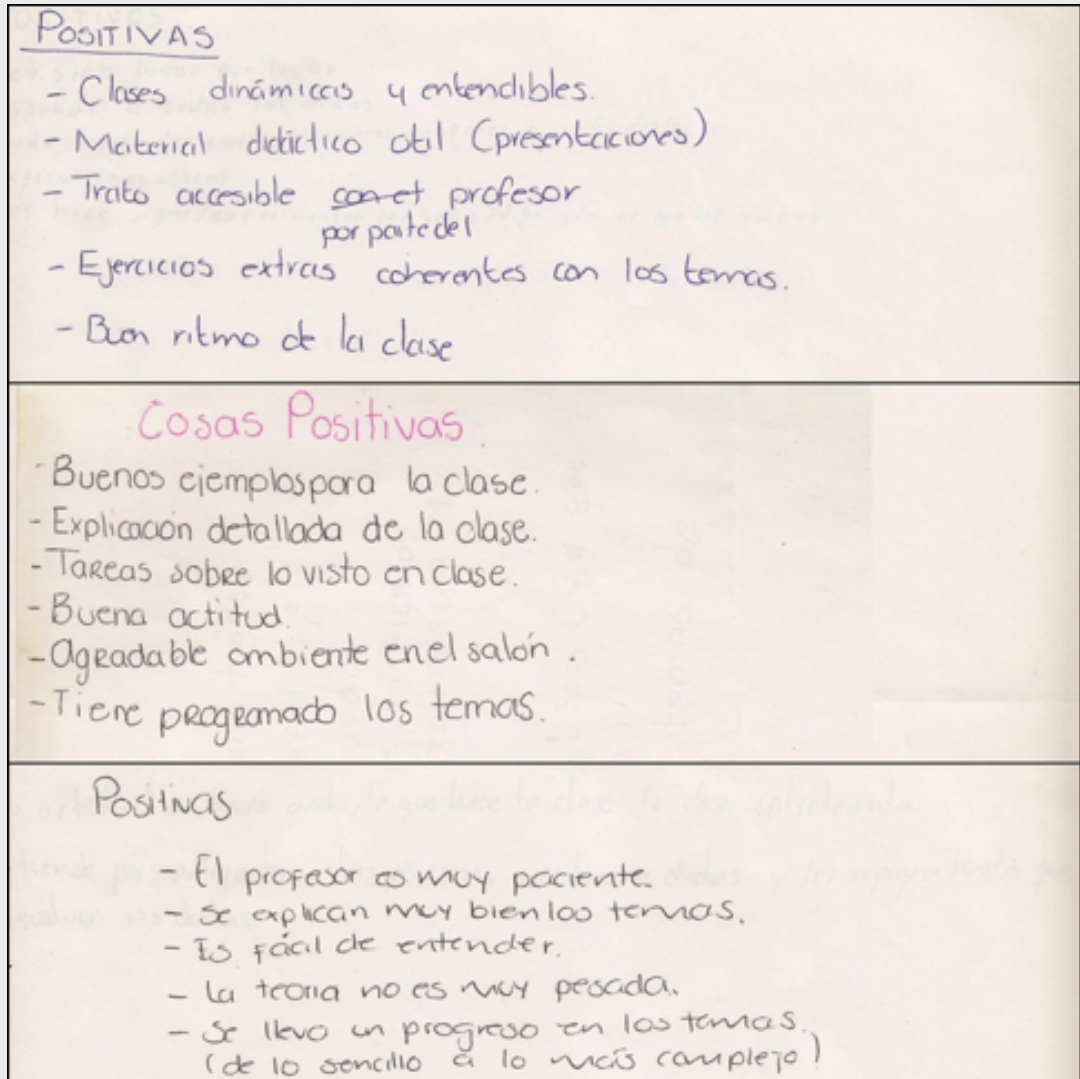 POSITIVAS
- Clases dinámicas y entendibles.
- Material didáctico útil (presentaciones)
- Trato accesible con el profesor
por parte del
- Ejercicios extras coherentes con los temas.
- Buen ritmo de la clase
Cosas Positivas
- Buenos ejemplos para la clase.
- Explicación detallada de la clase.
- Tareas sobre lo visto en clase.
- Buena actitud.
- Agradable ambiente en el salón.
- Tiene programado los temas.
Positivas
- El profesor es muy paciente.
- Se explican muy bien los temas.
- Es fácil de entender.
- La teoria no es muy pesada.
- Se llevo un progreso en los temas.
(de lo sencillo a lo más complejo)